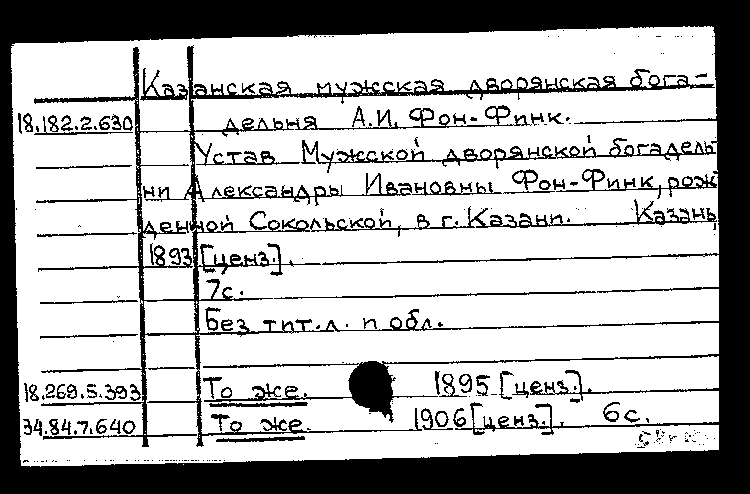 Казанская мужская дворянская бога-
18.182.2.630 дельня А.И. Фон-Финк.
Устав Мужской дворянской богадель
ни Александры Ивановны Фон-Финк, рож
денной Сокольской, в г. Казани. Казань,
1893 [ценз.].
7с.
Без тит.л. и обл.
18.269.5.393 То же. 1895 [ценз.].
34.84.7.640 То же. 1906 [ценз.]. 6с.